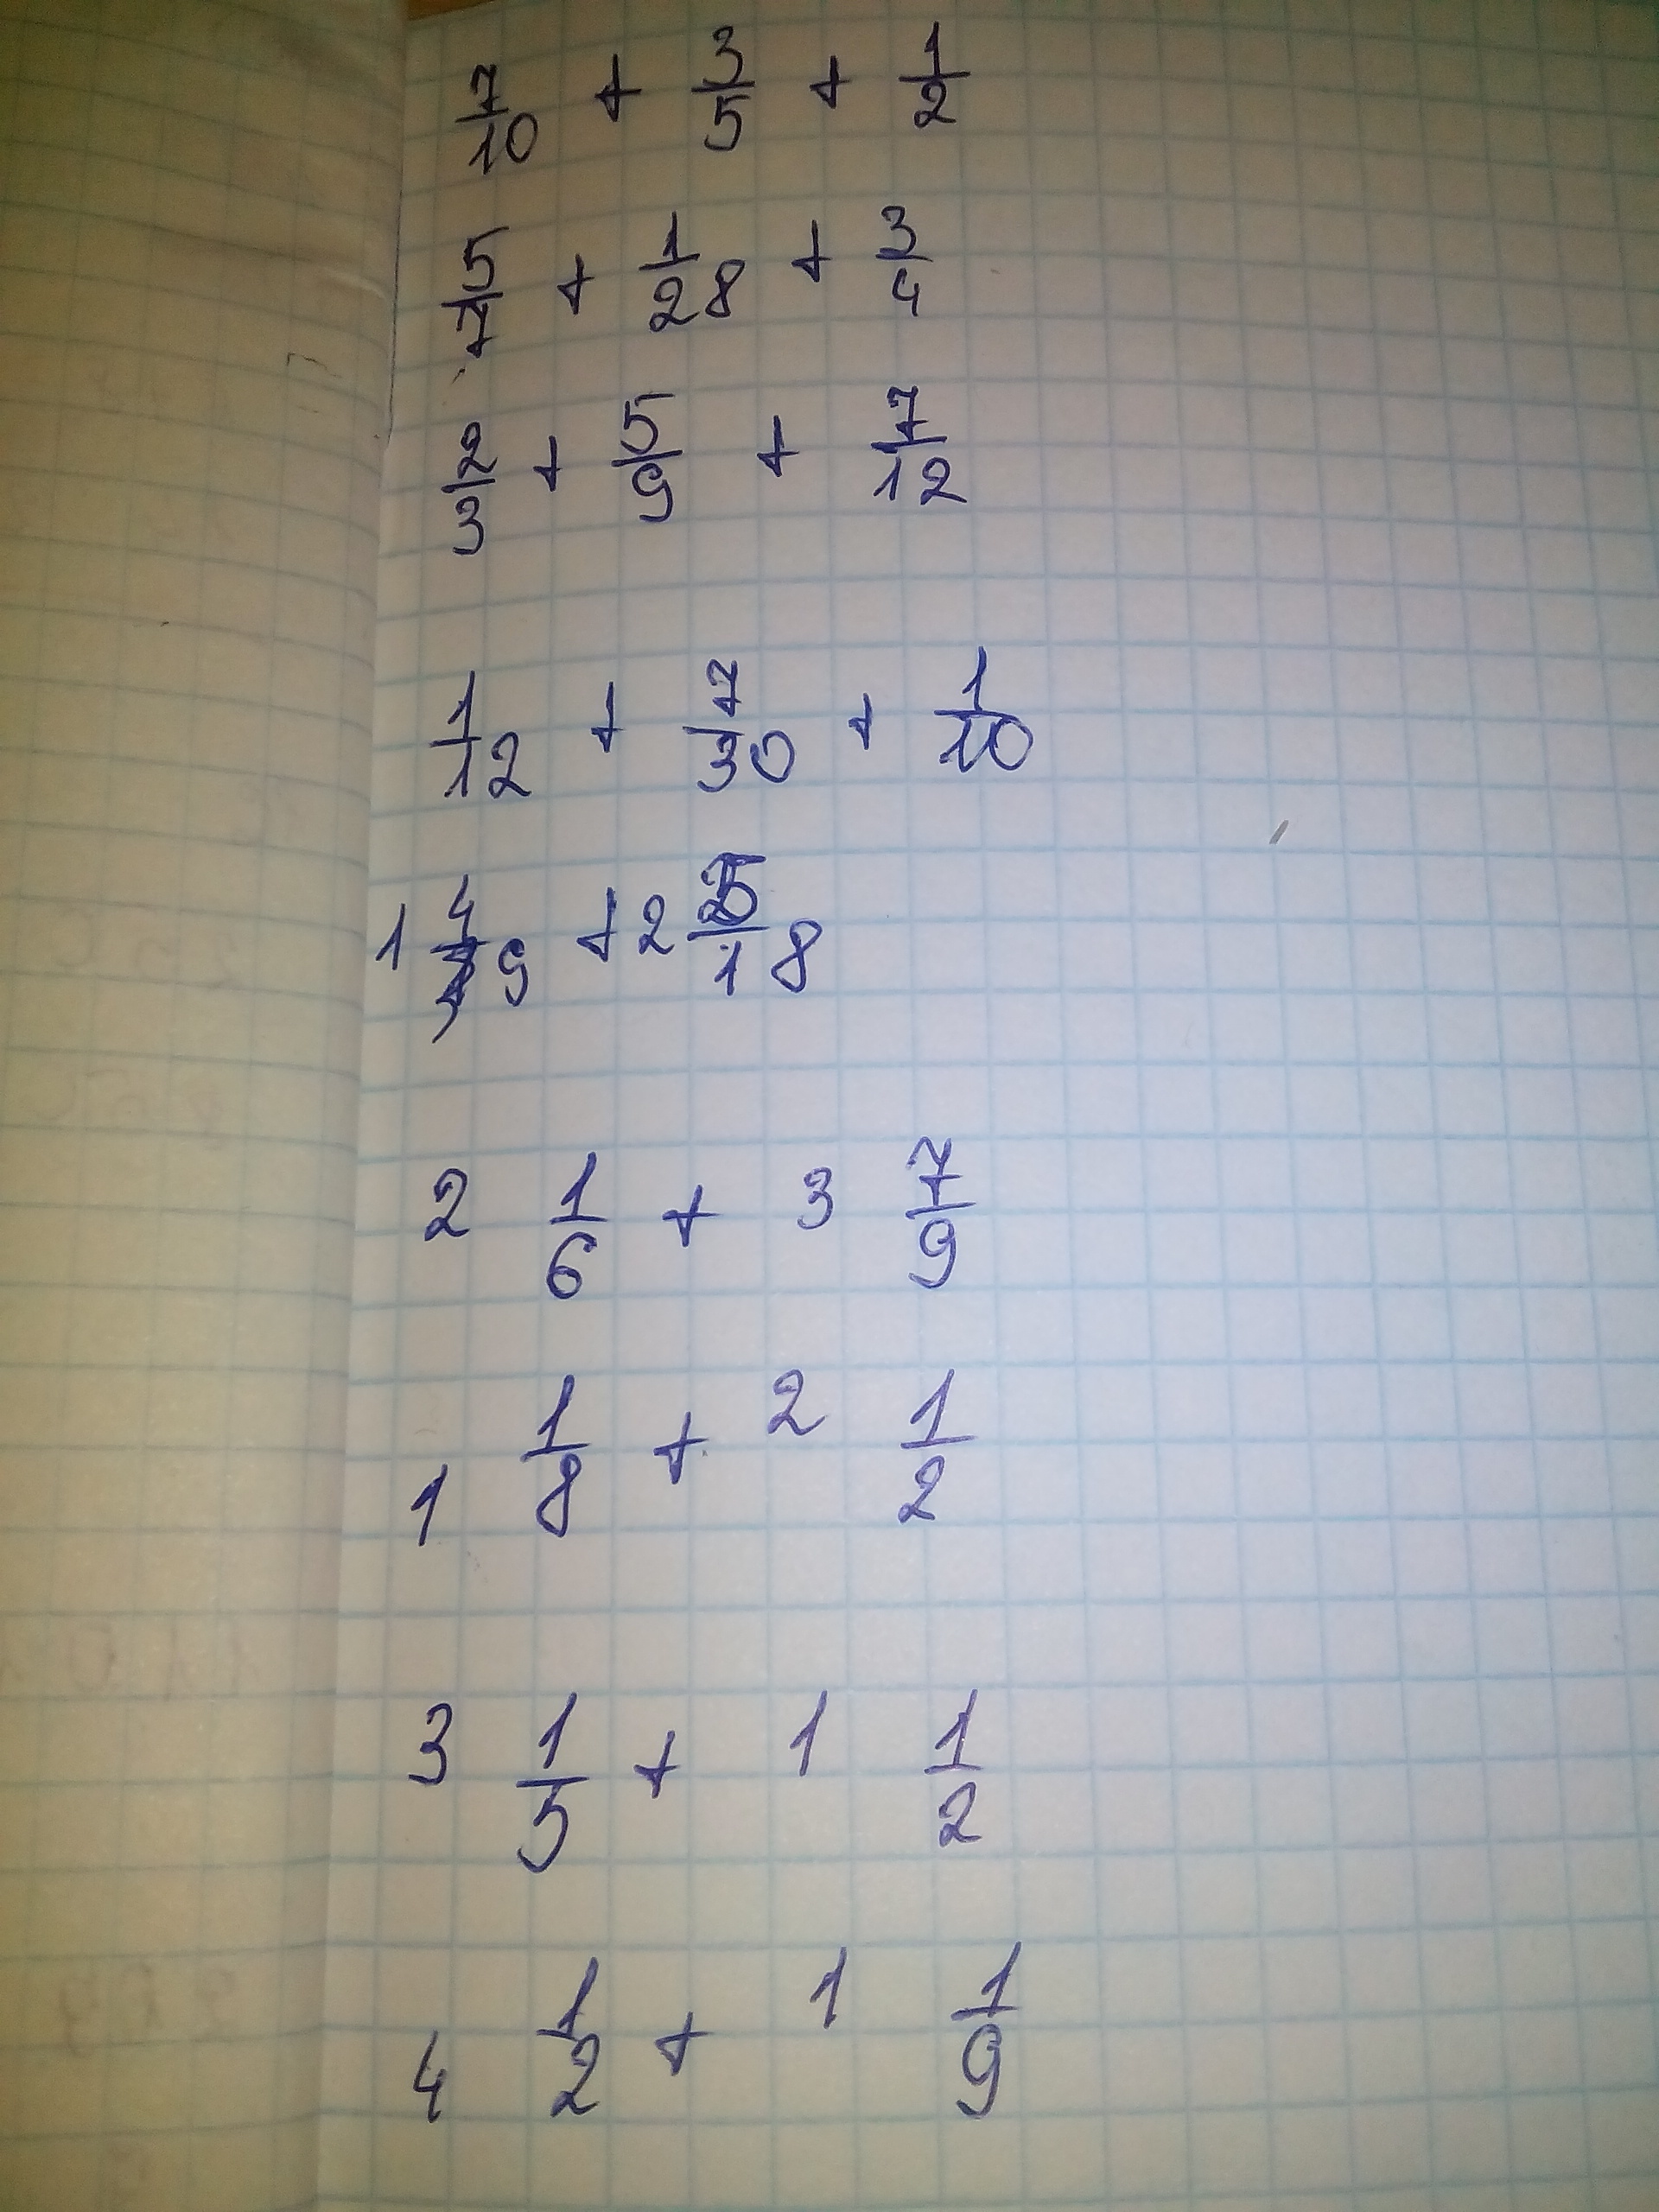 7/10 + 3/5 + 1/2
5/7 + 1/28 + 3/4
2/3 + 5/9 + 7/12
1/12 + 7/30 + 1/10
1 4/9 + 2 5/18
2 1/6 + 3 7/9
1 1/8 + 2 1/2
3 1/5 + 1 1/2
4 1/2 + 1 1/9